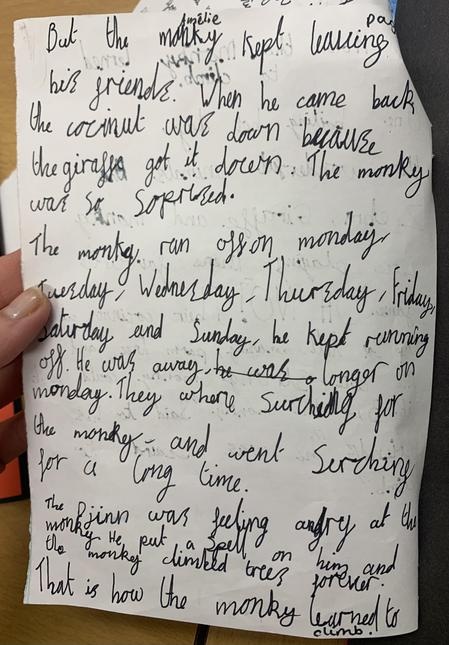 Amélie
But the monky kept leaving
his friends. When he came back
the cocinut was down because
the giraffe got it down. The monky
was so soprised.
The monky ran off on monday,
Tuesday, Wednesday, Thursday, Friday,
Saturday and Sunday, he kept running
off. He was away, he was longer on
monday. They where Surching for
the monky and went Serching
for a long time.
The Djinn was feeling angry at the
monky. He put a spell on him and
the monky climbed trees forever.
That is how the monky learned to
climb.